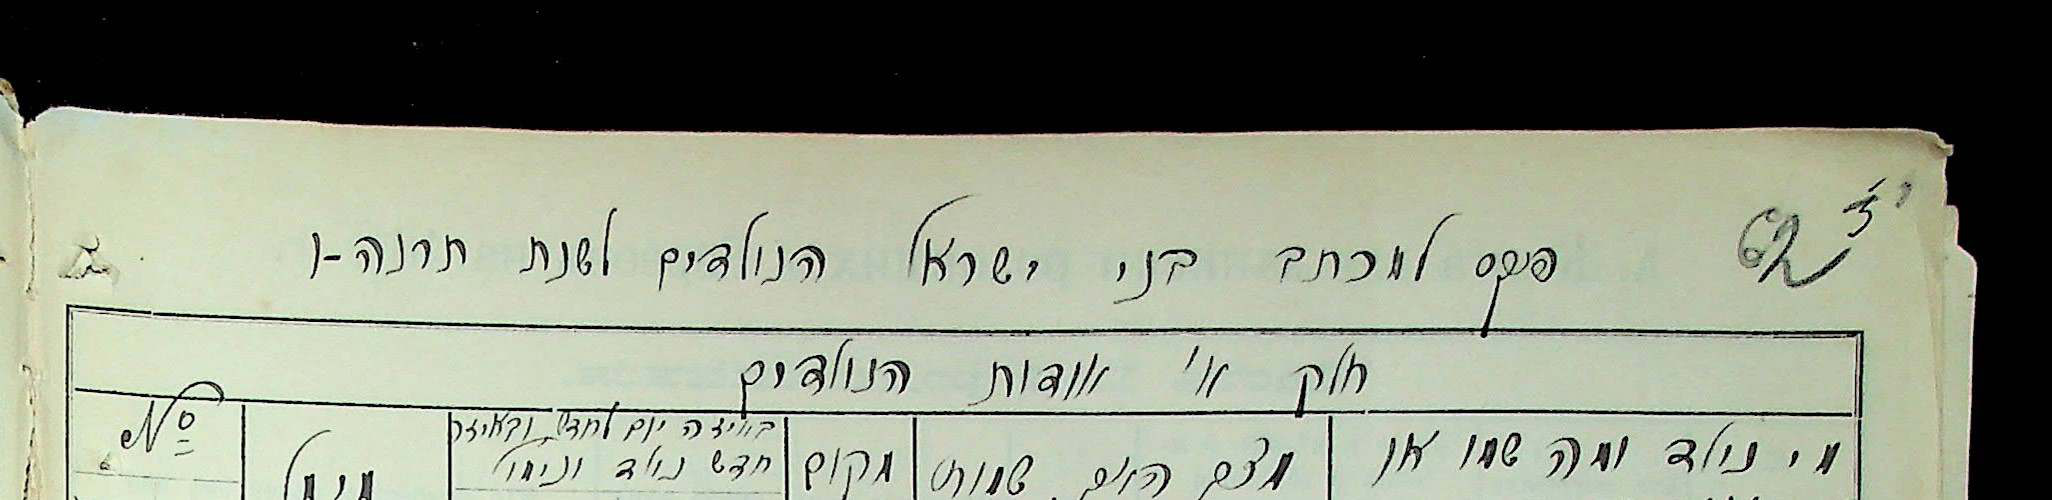 פנקס למכתב בני ישראל הנולדים לשנת תרנה-ו
חלק א' אודות הנולדים
מי נולד ומה שמו או
מצב האב, שמות
מקום
באיזה יום לחדש ובאיזה
חדש נולד ונימול
מי מל
№